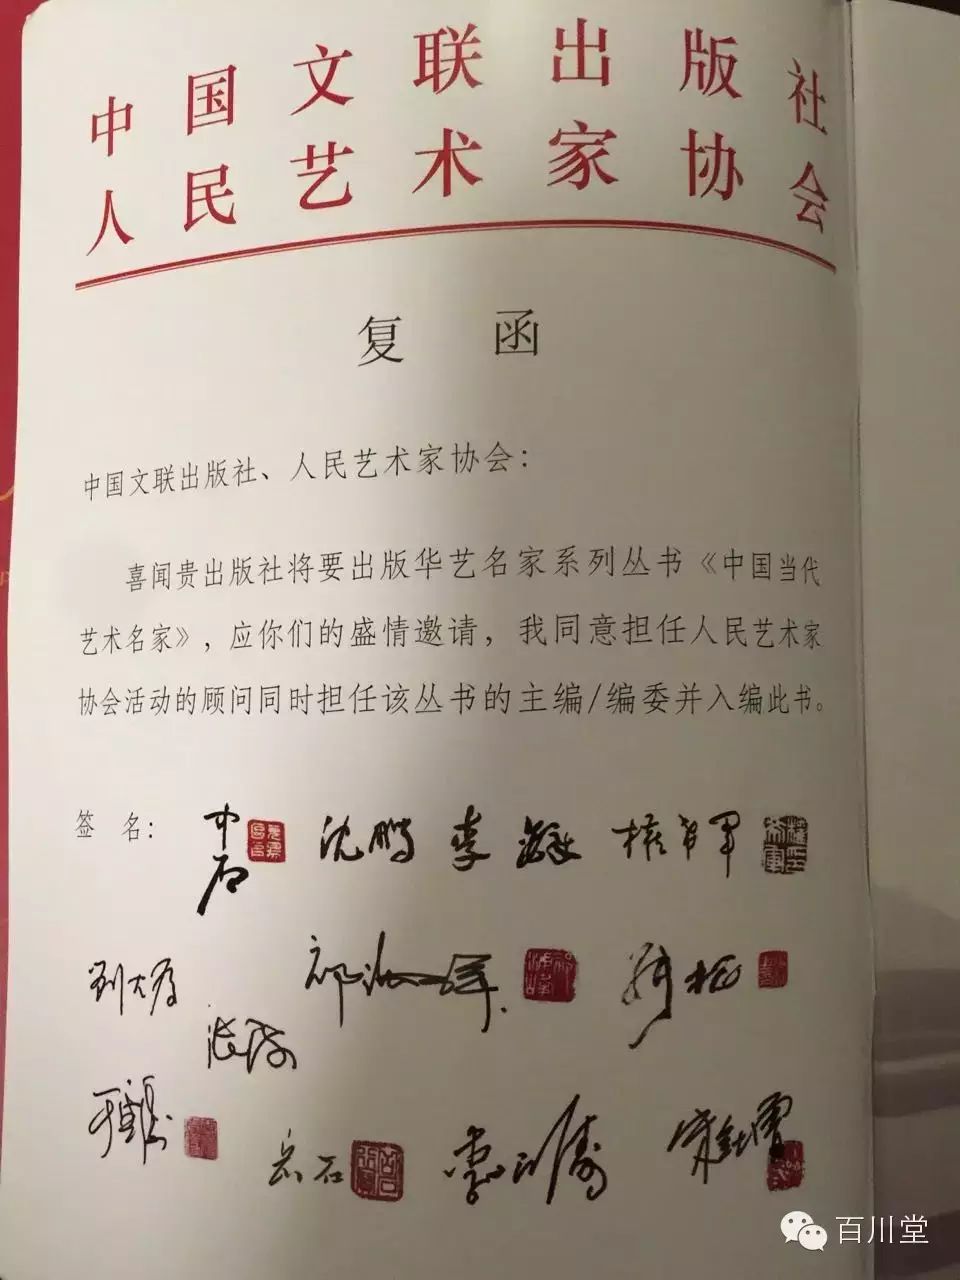 中国文联出版社
人民艺术家协会
复函
中国文联出版社、人民艺术家协会：
喜闻贵出版社将要出版华艺名家系列丛书《中国当代
艺术名家》，应你们的盛情邀请，我同意担任人民艺术家
协会活动的顾问同时担任该丛书的主编/编委并入编此书。
签名：
中石 沈鹏 李铎 权希军
刘大为
张海
岳石
百川堂